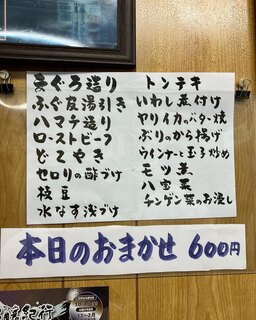 まぐろ造り
ふぐ皮湯引き
ハマチ造り
ローストビーフ
どてやき
セロリの酢づけ
枝豆
水なす浅づけ
トンテキ
いわし煮付け
ヤリイカのバター焼
ぶりのから揚げ
ウインナーと玉子炒め
モツ煮
八宝菜
チンゲン菜のお浸し
本日のおまかせ 600円
紀行